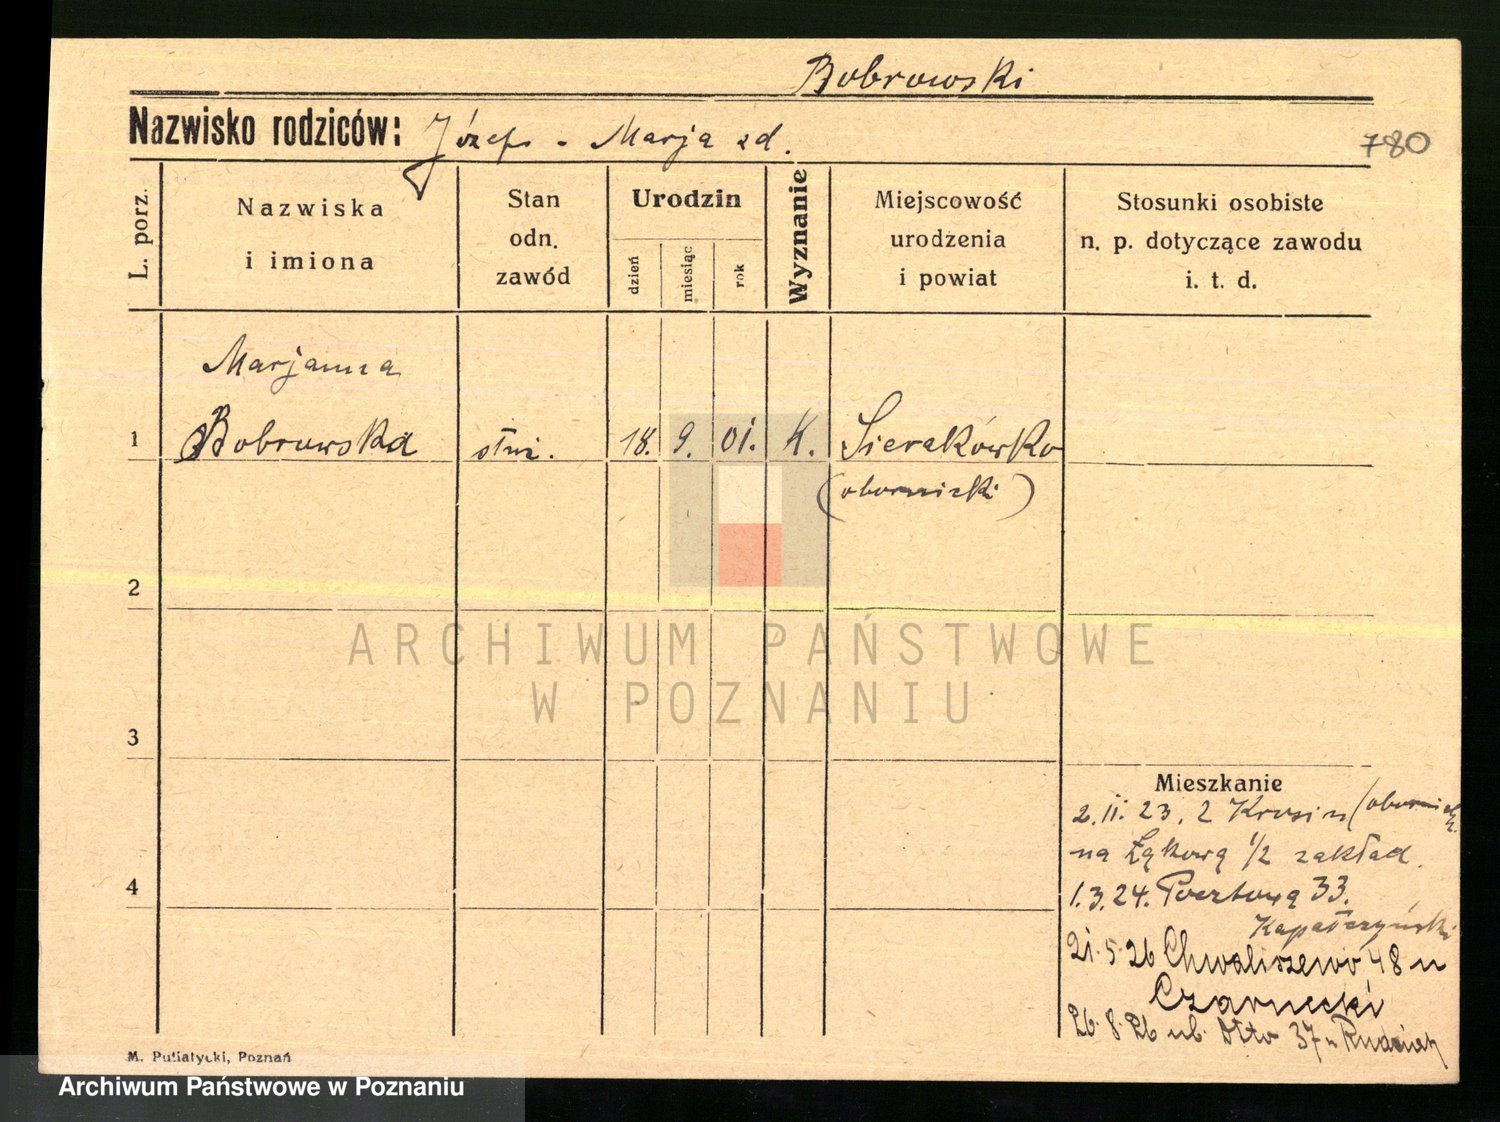 Bobrowski
Nazwisko rodziców: Józef - Marja zd.
780
L. porz.
Nazwiska
i imiona
Stan
odn.
zawód
Urodzin
dzień
miesiąc
rok
Wyznanie
Miejscowość
urodzenia
i powiat
Stosunki osobiste
n. p. dotyczące zawodu
i. t. d.
Marjanna
1 Bobrowska służ. 18. 9. 01. K. Sierakówko
(obornicki)
2
ARCHIWUM PAŃSTWOWE
W POZNANIU
3
Mieszkanie
2.11.23. z Krosin (obornick
na Łąkową 1/2 zakład.
4
1.3.24. Pocztowa 33.
Kapałczyński
21.5.26 Chwaliszewo 48 u
Czarnecki
26.8.26 ul. 37 u
M. Putiatycki, Poznań
Archiwum Państwowe w Poznaniu